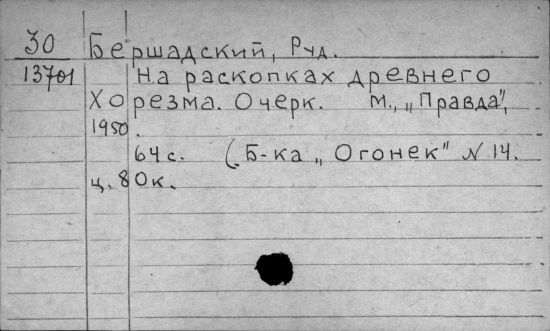 30 Бершадский, Руд.
13701 На раскопках древнего
Хорезма. Очерк. М., „Правда",
1950.
64 с. (Б-ка „Огонек" № 14.
ц. 80к.